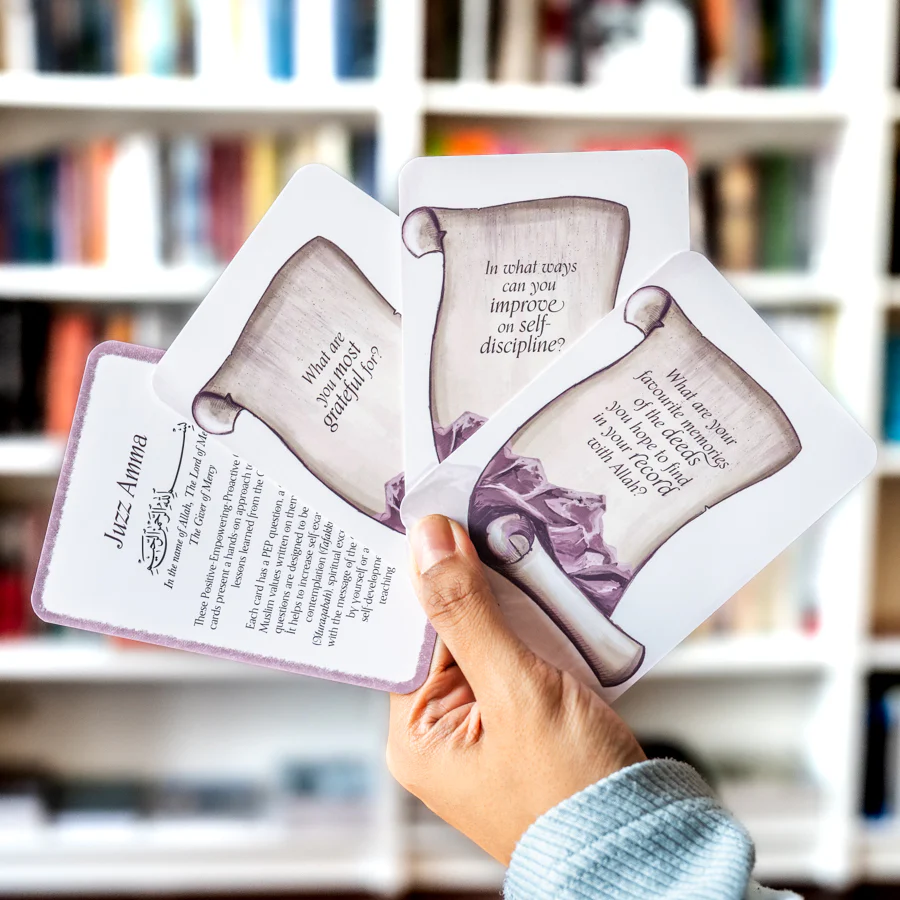 Juzz Amma
بسم الله الرحمن الرحيم
In the name of Allah, The Lord of Me
The Giver of Mercy
These Positive-Empowering Proactive
cards present a hands-on approach to
lessons learned from the
Each card has a PEP question, a
Muslim values written on them
questions are designed to be
It helps to increase self-exa
contemplation (Tafakk
(Muraqabah), spiritual exc
with the message of the
by yourself or a
self-developme
teaching
What are
you most
grateful for?
In what ways
can you
improve
on self-
discipline?
What are your
favourite memories
of the deeds
you hope to find
in your record
with Allah?